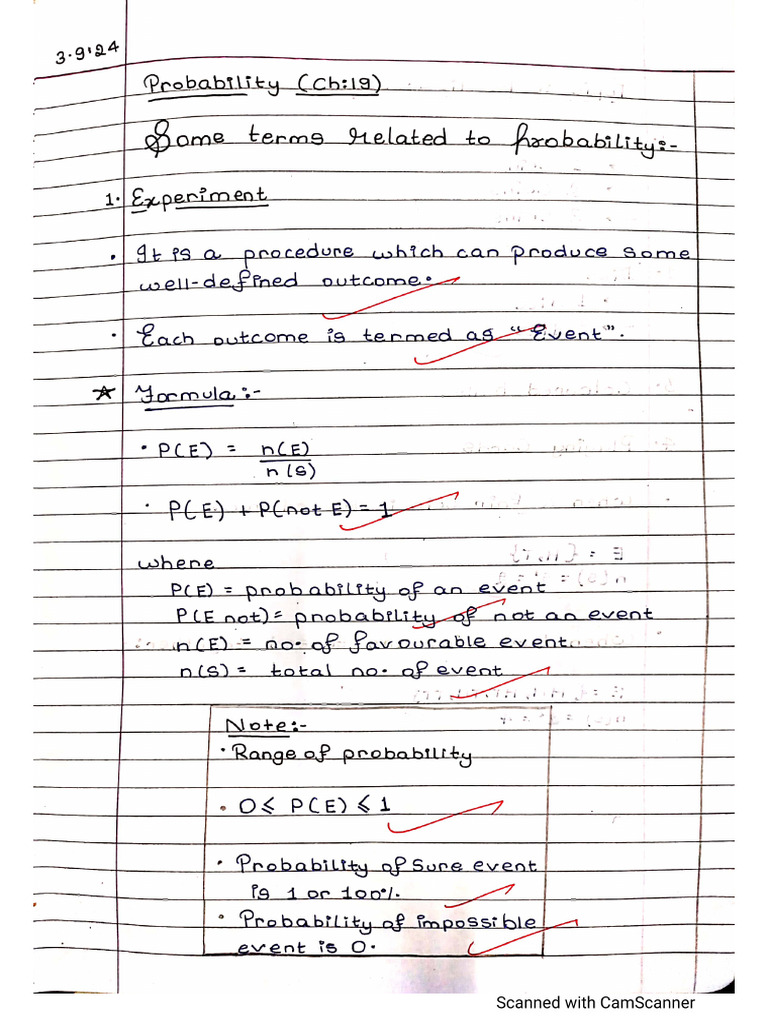 3.9'24
Probability (Ch:19)
Some terms related to probability:-
1. Experiment
• It is a procedure which can produce some
well-defined outcome.
• Each outcome is termed as "Event".
☆ Formula:-
• P(E) = n(E)/n(S)
• P(E) + P(not E) = 1
where
P(E) = probability of an event
P(E not) = probability of not an event
n(E) = no. of favourable event
n(S) = total no. of event
Note:-
• Range of probability
• 0 ⩽ P(E) ⩽ 1
• Probability of sure event
is 1 or 100%.
• Probability of impossible
event is 0.
Scanned with CamScanner